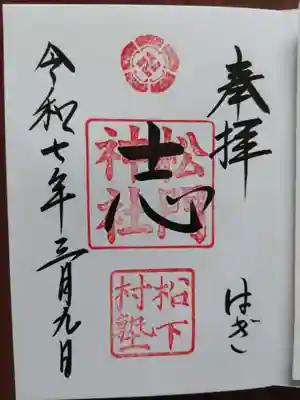 奉拝
はぎ
志
松門
神社
松下
村塾
令和七年三月九日